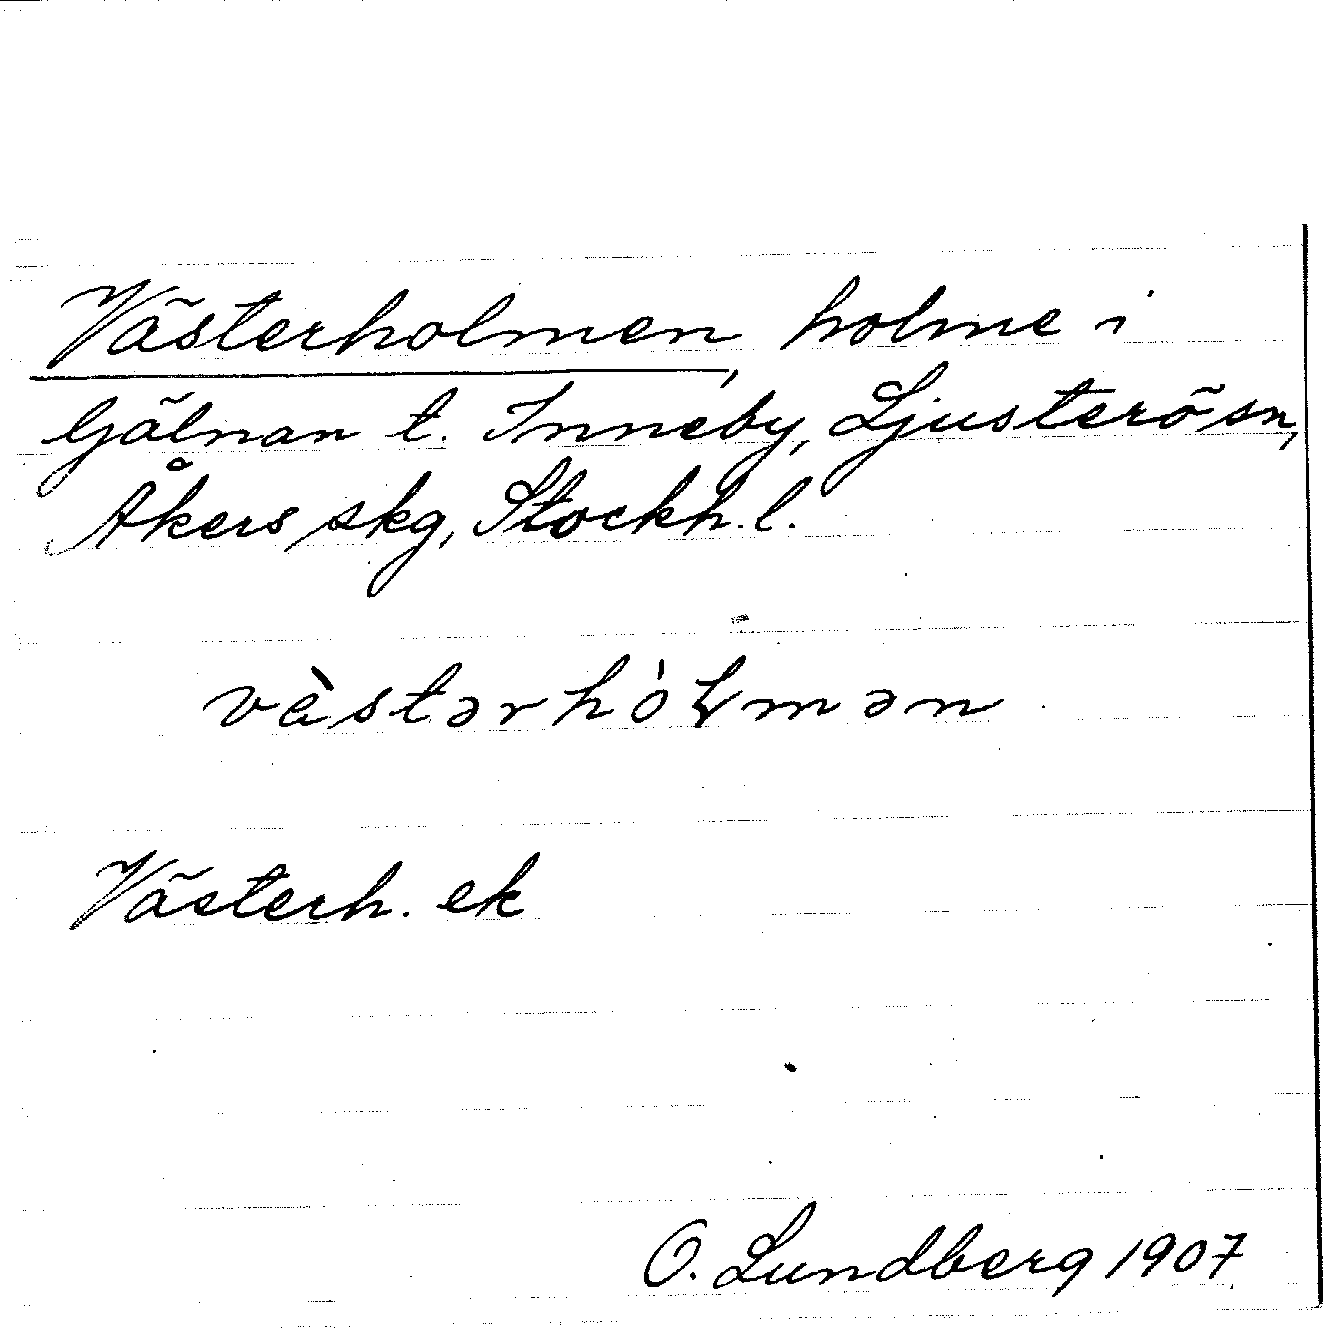 Västerholmen, holme i
Gälnan t. Inneby, Ljusterö sn,
Åkers skg, Stockh. l.
vàstərhóɫmən
Västerh. ek
O. Lundberg 1907